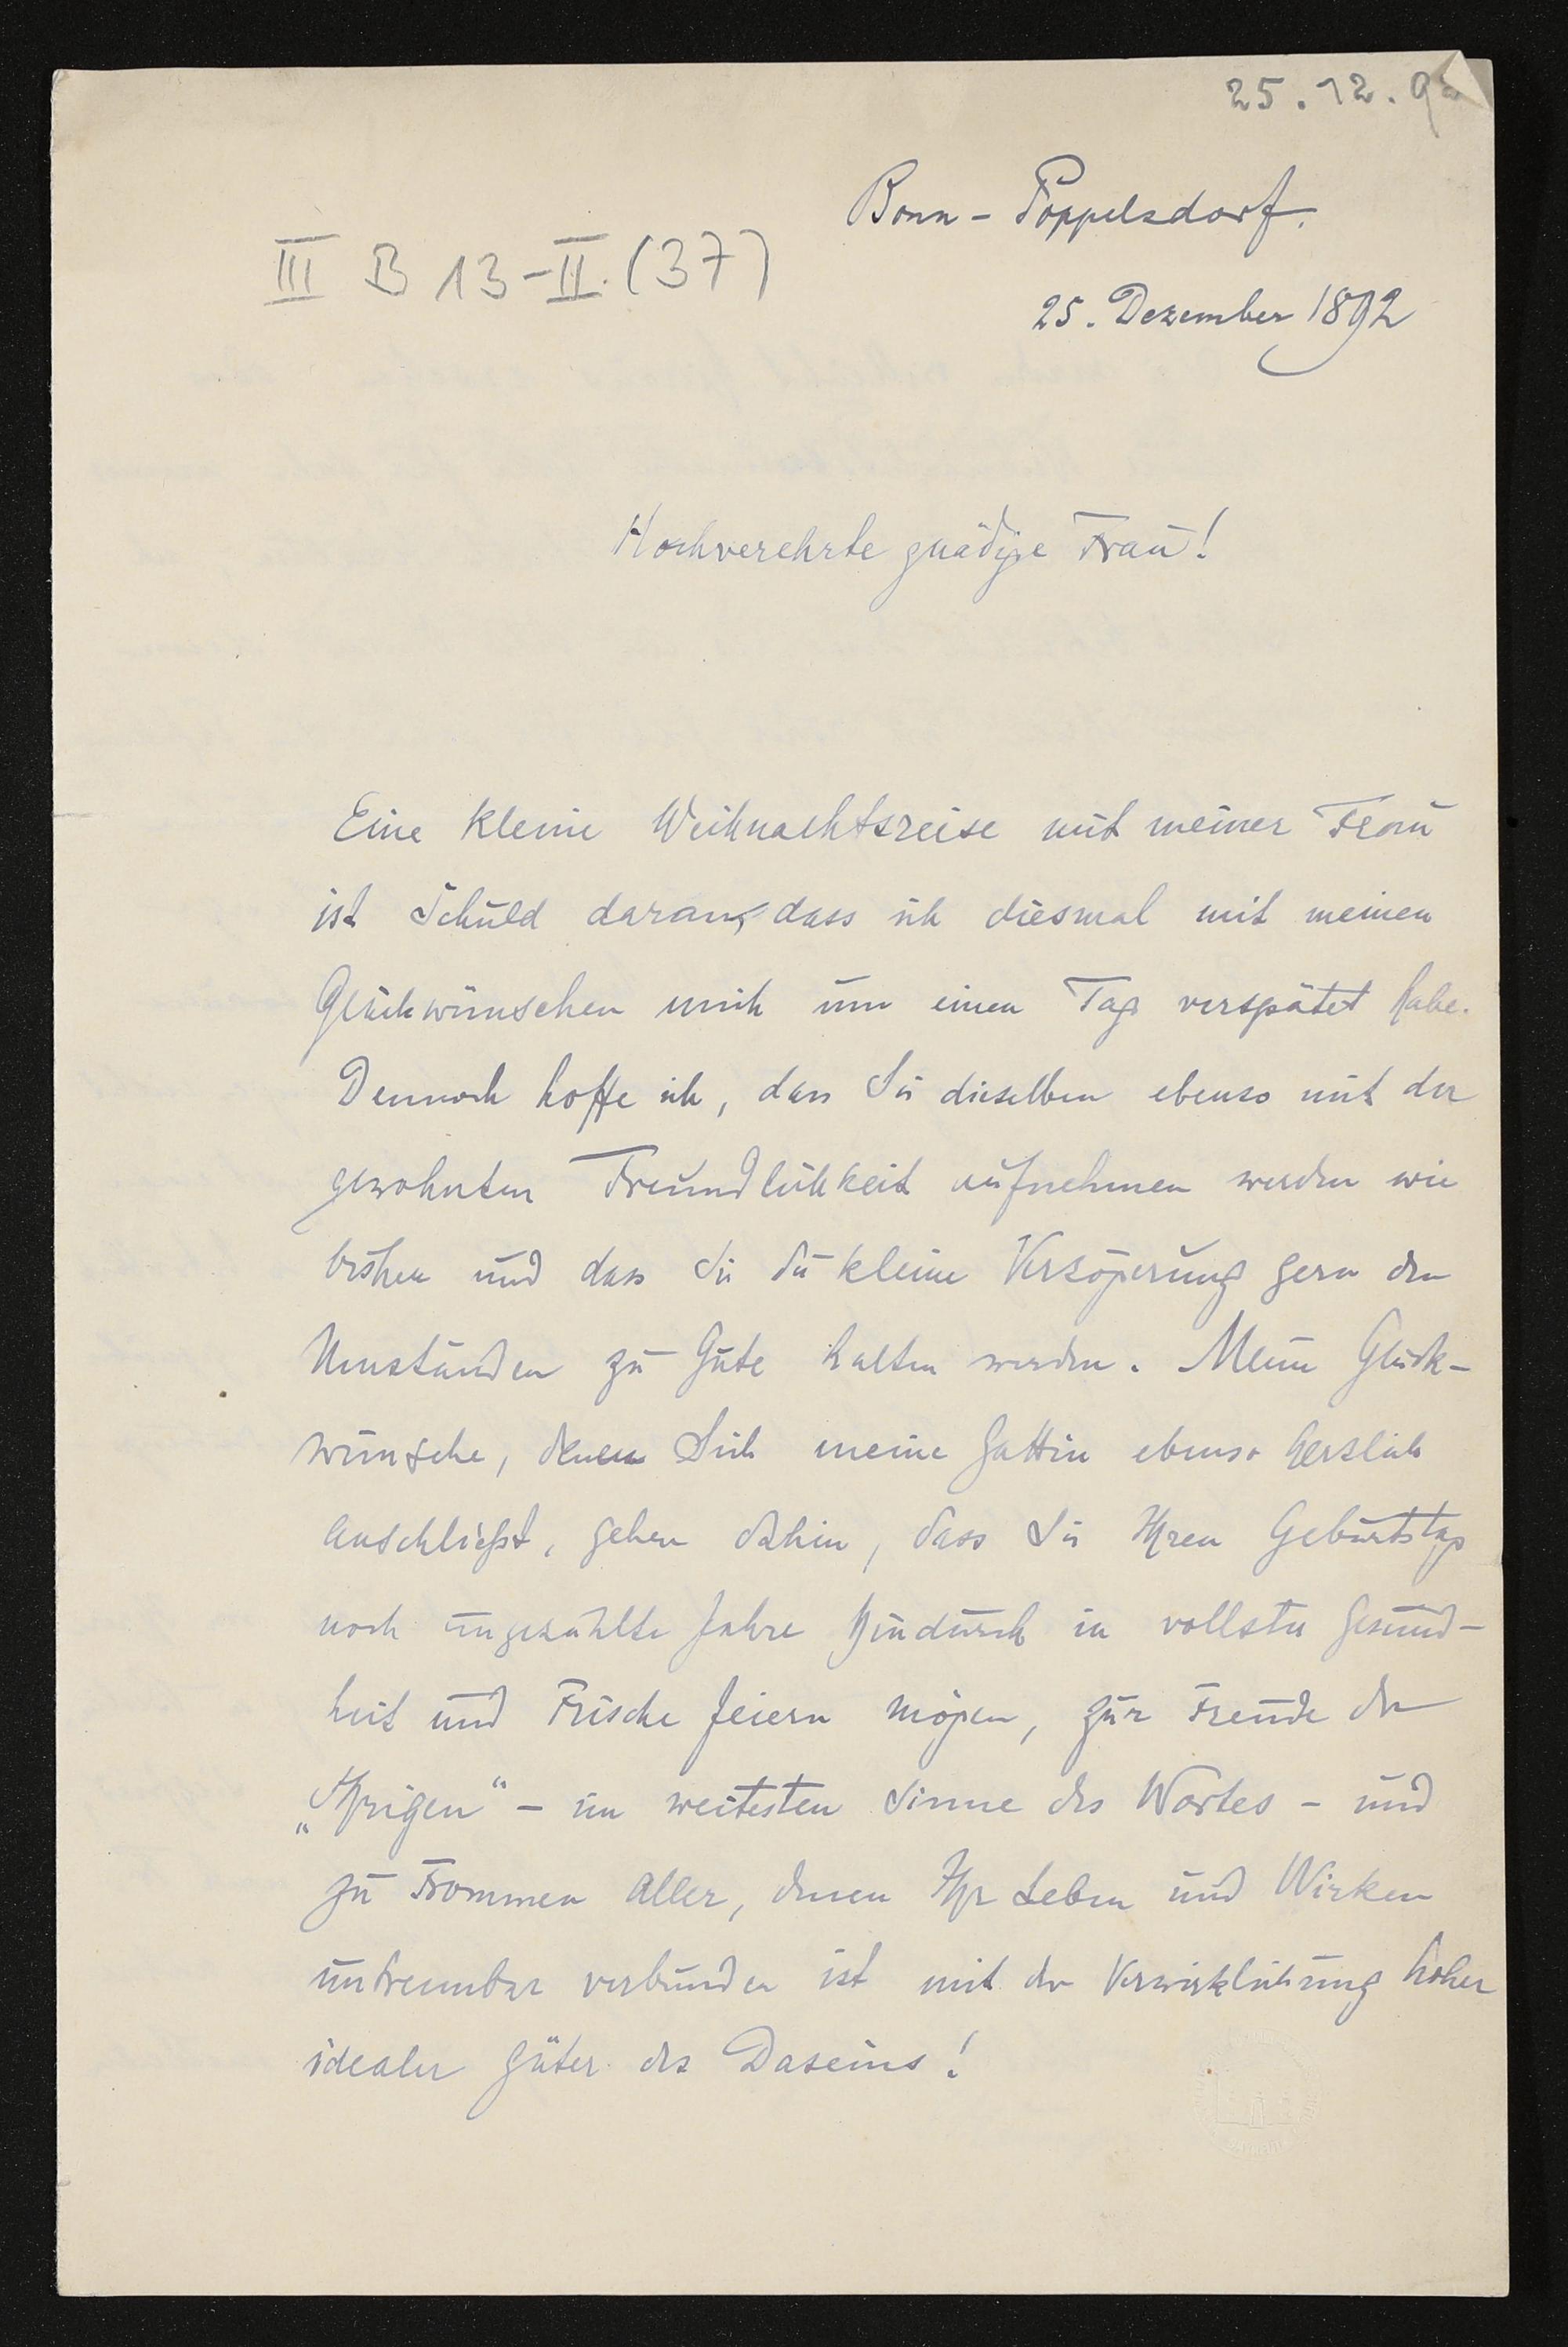 25.12.92
Bonn-Poppelsdorf.
III B 13-II.(37)
25. Dezember 1892
Hochverehrte gnädige Frau!
Eine kleine Weihnachtsreise mit meiner Frau
ist Schuld daran, dass ich diesmal mit meinen
Glückwünschen mich um einen Tag verspätet habe.
Dennoch hoffe ich, dass Sie dieselben ebenso mit der
gewohnten Freundlichkeit aufnehmen werden wie
bisher und dass Sie die kleine Verzögerung gern den
Umständen zu Gute halten werden. Meine Glück-
wünsche, denen Sich meine Gattin ebenso herzlich
anschließt, gehen dahin, dass Sie Ihren Geburtstag
noch ungezählte Jahre hindurch in vollster Gesund-
heit und Frische feiern mögen, zur Freude der
„Ihrigen“ - im weitesten Sinne des Wortes - und
zu Frommen aller, denen Ihr Leben und Wirken
untrennbar verbunden ist mit der Verwirklichung hoher
idealer Güter des Daseins!